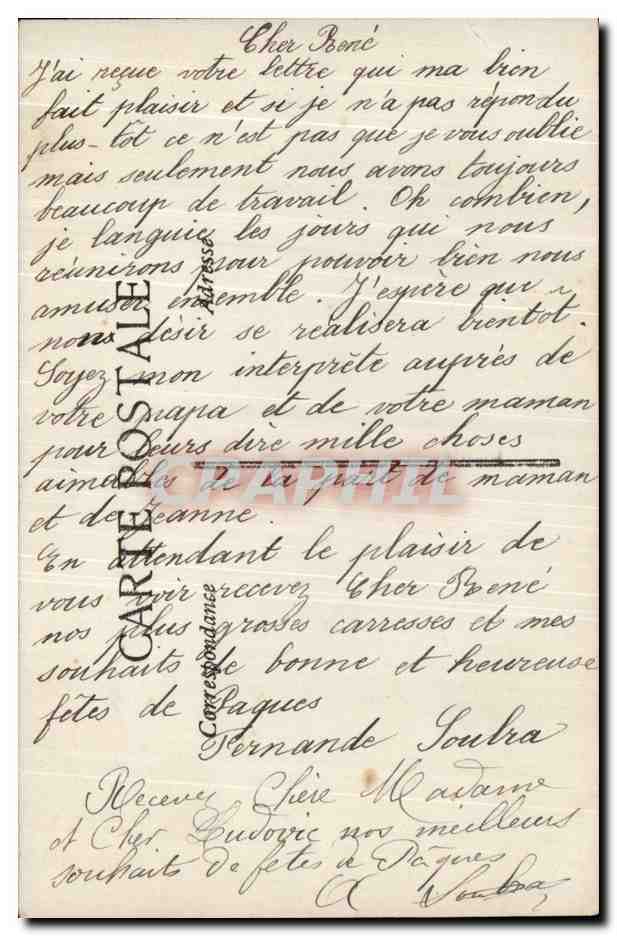 Cher René
J'ai reçue votre lettre qui ma bien
fait plaisir et si je n'a pas répondu
plus-tôt ce n'est pas que je vous oublie
mais seulement nous avons toujours
beaucoup de travail. Oh combien,
je languie les jours qui nous
réunirons pour pouvoir bien nous
amuser ensemble. J'espère que
nous désir se realisera bientot.
Soyez mon interprête auprés de
votre papa et de votre maman
pour leurs dire mille choses
aimables de la part de maman
et de Jeanne.
En attendant le plaisir de
vous voir recevez Cher René
nos plus grosses carresses et mes
souhaits de bonne et heureuse
fêtes de Paques
Fernande Soulra
Recevez Chère Madame
et Cher Ludovic nos meilleurs
souhaits de fêtes de Pâques
CARTE POSTALE
Correspondance
Adresse
CPAPHIL